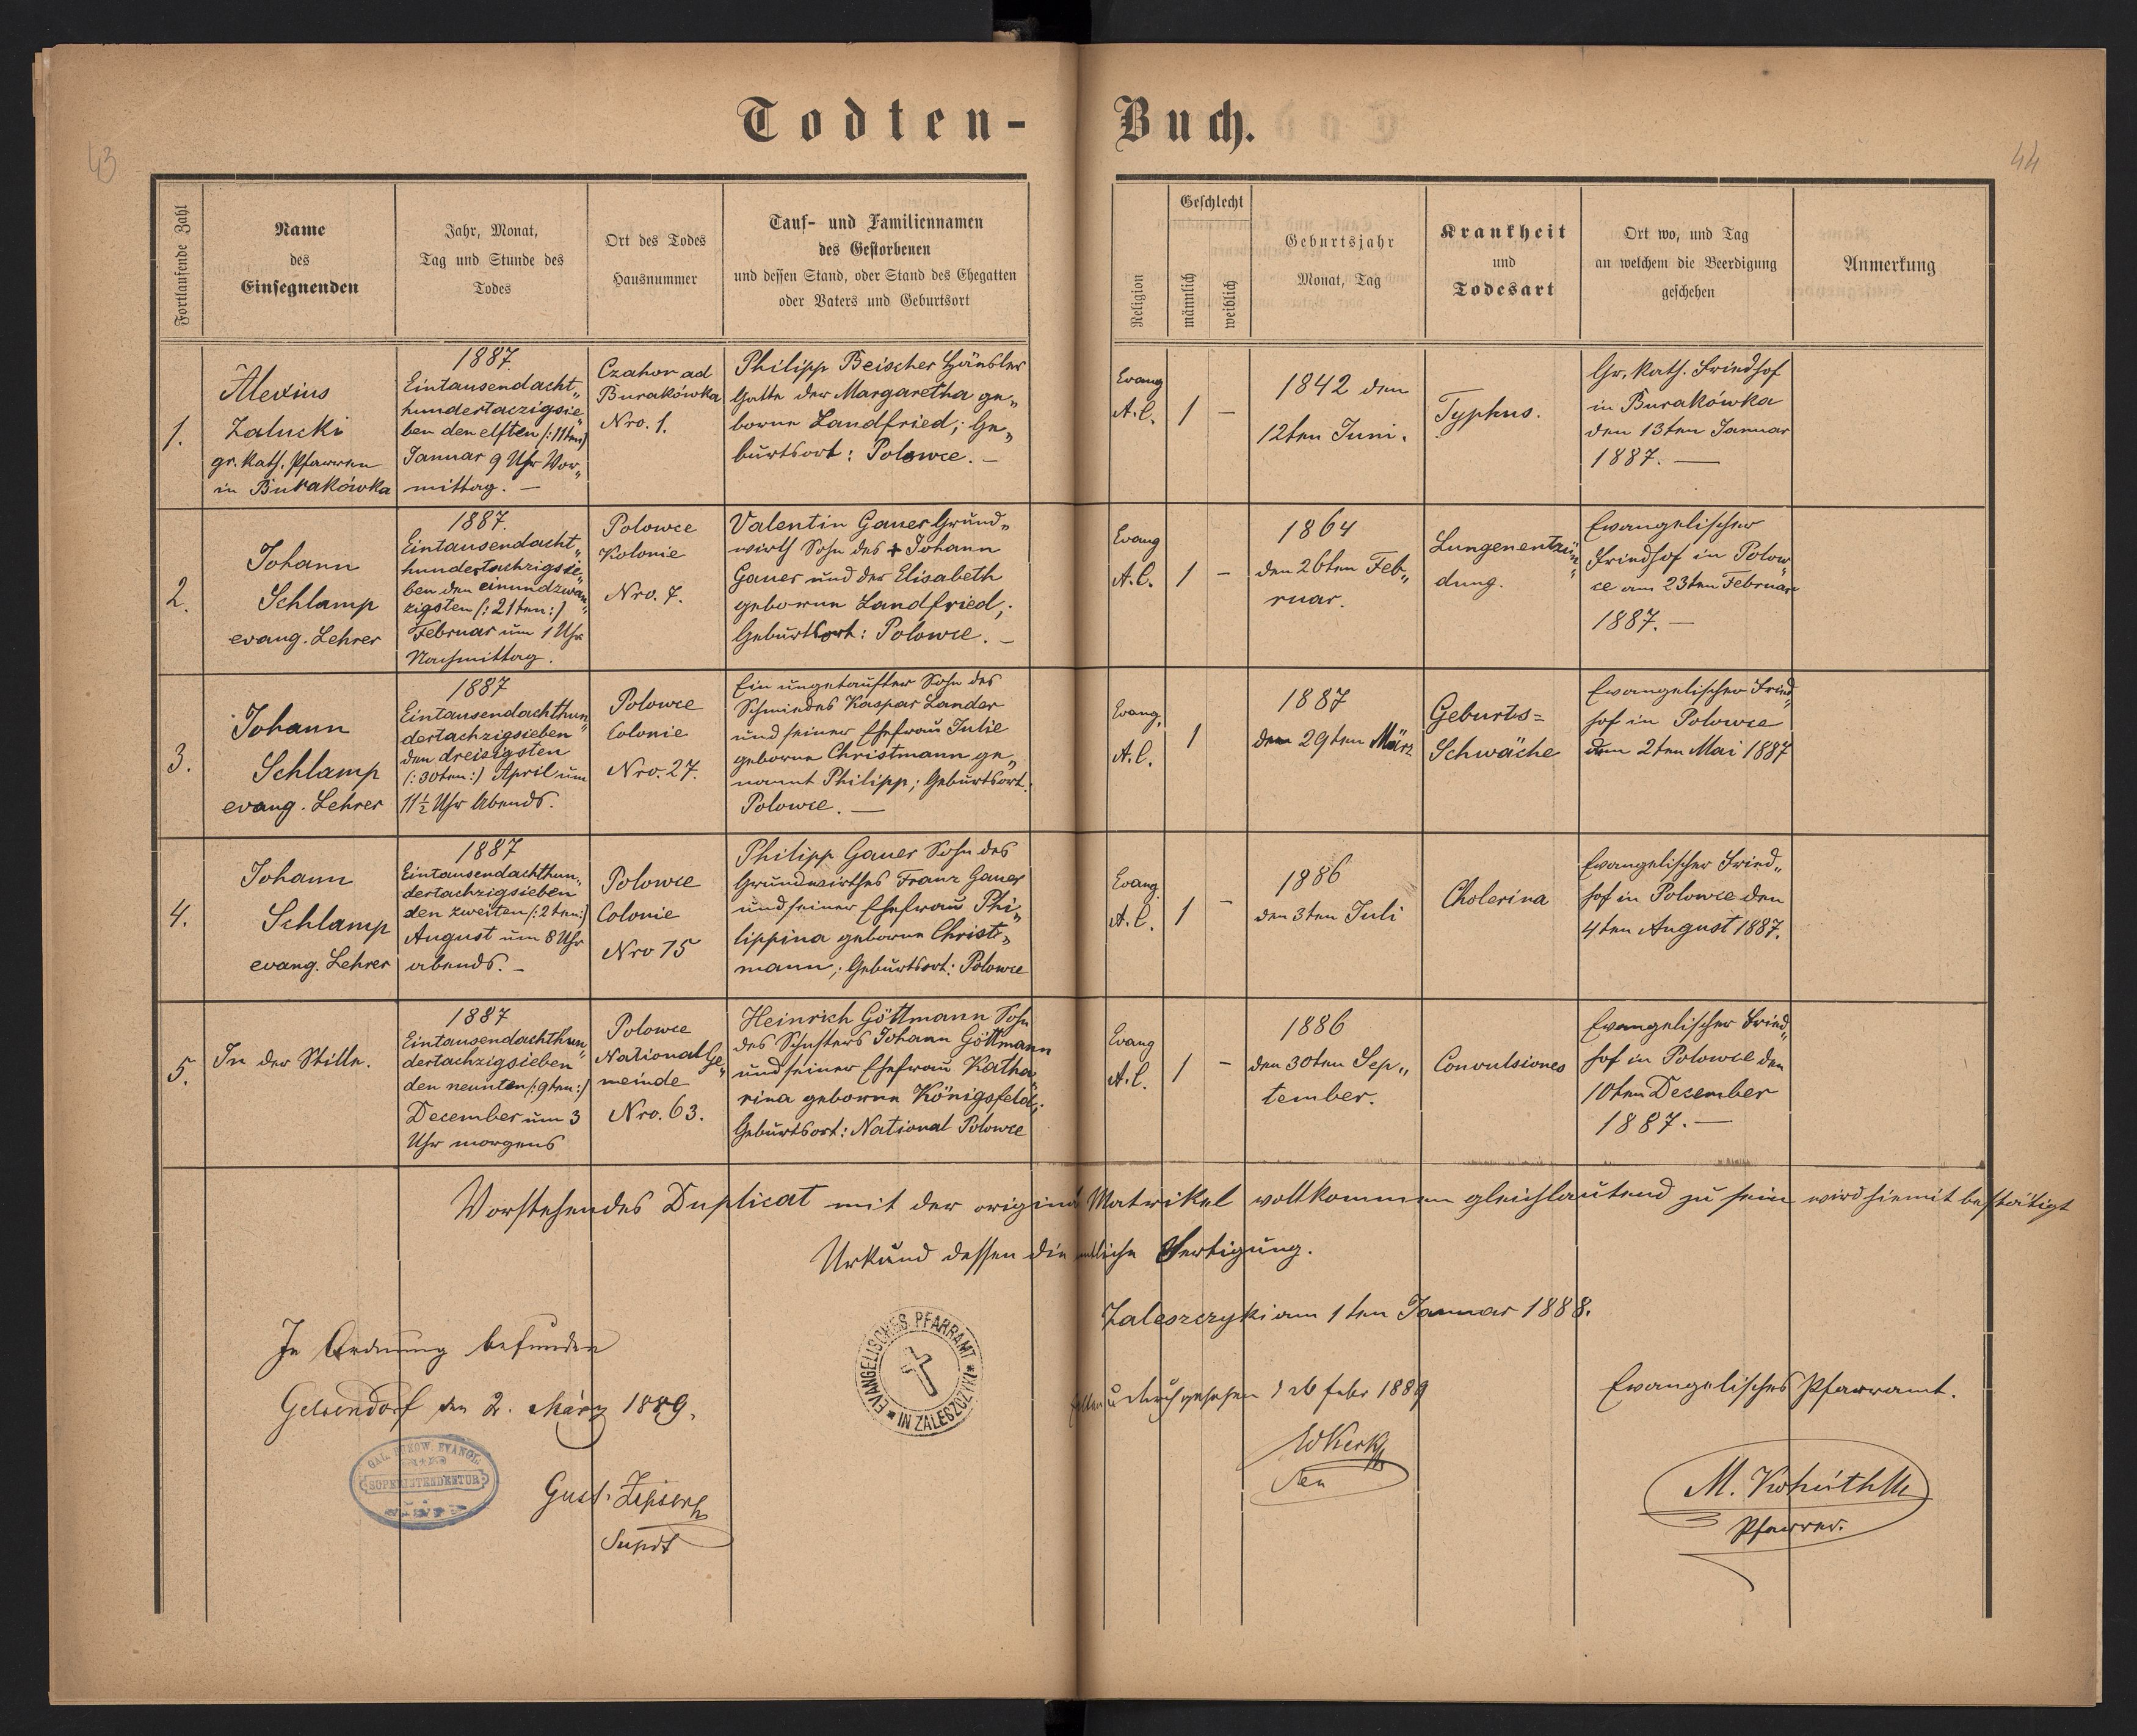 Todten- Buch.
43
44
Fortlaufende Zahl
Name
des
Einsegnenden
Jahr, Monat,
Tag und Stunde des
Todes
Ort des Todes
Hausnummer
Tauf- und Familiennamen
des Gestorbenen
und dessen Stand, oder Stand des Ehegatten
oder Vaters und Geburtsort
Religion
Geschlecht
männlich
weiblich
Geburtsjahr
Monat, Tag
Krankheit
und
Todesart
Ort wo, und Tag
an welchem die Beerdigung
geschehen
Anmerkung
1.
Alexius
Zalucki
gr. kath. Pfarrer
in Burakówka
1887.
Eintausendacht„
hundertaczigsie„
ben den elften (:11ten:)
Januar 9 Uhr Vor„
mittag. –
Czahor ad
Burakówka
Nro. 1.
Philipp Beischer Häusler
Gatte der Margaretha ge„
borne Landfried; Ge„
burtsort: Polowce. –
Evang
A. C.
1
–
1842 den
12ten Juni.
Typhus.
Gr. kath. Friedhof
in Burakówka
den 13ten Januar
1887. —
2.
Johann
Schlamp
evang. Lehrer
1887.
Eintausendacht„
hundertachzigsie„
ben den einundzwan„
zigsten (: 21ten:)
Februar um 1 Uhr
Nachmittag.
Polowce
Kolonie
Nro. 7.
Valentin Gauer Grund„
wirth Sohn des + Johann
Gauer und der Elisabeth
geborne Landfried;
Geburtsort: Polowce. –
Evang
A. C.
1
–
1864
den 26ten Feb„
ruar.
Lungenentzün„
dung.
Evangelischer
Friedhof in Polow„
ce am 23ten Februar
1887. —
3.
Johann
Schlamp
evang. Lehrer
1887
Eintausendachthun„
dertachzigsieben
den dreisigsten
(:30ten:) April um
11½ Uhr Abends.
Polowce
Colonie
Nro. 27.
Ein ungetaufter Sohn des
Schmiedes Kaspar Landar
und seiner Ehefrau Julie
geborne Christmann ge„
nannt Philipp; Geburtsort:
Polowce. —
Evang.
A. C.
1
1887
den 29ten März
Geburts=
Schwäche
Evangelischer Fried„
hof in Polowce
den 2ten Mai 1887
4.
Johann
Schlamp
evang. Lehrer
1887
Eintausendachthun„
dertachzigsieben
den zweiten (:2ten:)
August um 8 Uhr
abends. –
Polowce
Colonie
Nro 15
Philipp Gauer Sohn des
Grundwirthes Franz Gauer
und seiner Ehefrau Phi„
lippina geborne Christ„
mann; Geburtsort: Polowce
Evang.
A. C.
1
–
1886
den 3ten Juli
Cholerina
Evangelischer Fried„
hof in Polowce den
4ten August 1887.
5.
In der Stille.
1887
Eintausendachthun„
dertachzigsieben
den neunten (:9ten:)
December um 3
Uhr morgens
Polowce
National Ge„
meinde
Nro. 63.
Heinrich Göttmann Sohn
des Schusters Johann Göttmann
und seiner Ehefrau Katha„
rina geborne Königsfeld;
Geburtsort: National Polowce
Evang
A. C.
1
–
1886
den 30ten Sep„
tember.
Convulsiones
Evangelischer Fried„
hof in Polowce den
10ten December
1887. —
Vorstehendes Duplicat mit der original Matrikel vollkommen gleichlautend zu sein wird hiemit bestätigt
Urkund dessen die Fertigung.
Zaleszczyki am 1ten Januar 1888.
In Ordnung befunden
Gelsendorf den 2. März 1889.
EVANGELISCHES PFARRAMT
IN ZALESZCZYKI
durchgesehen 26 febr 1889
Sen
Evangelisches Pfarramt.
GAL. BUKOW. EVANGL.
SUPERINTENDENTUR
Gust. Zipser
Supdt
M. Kohuth
Pfarrer.